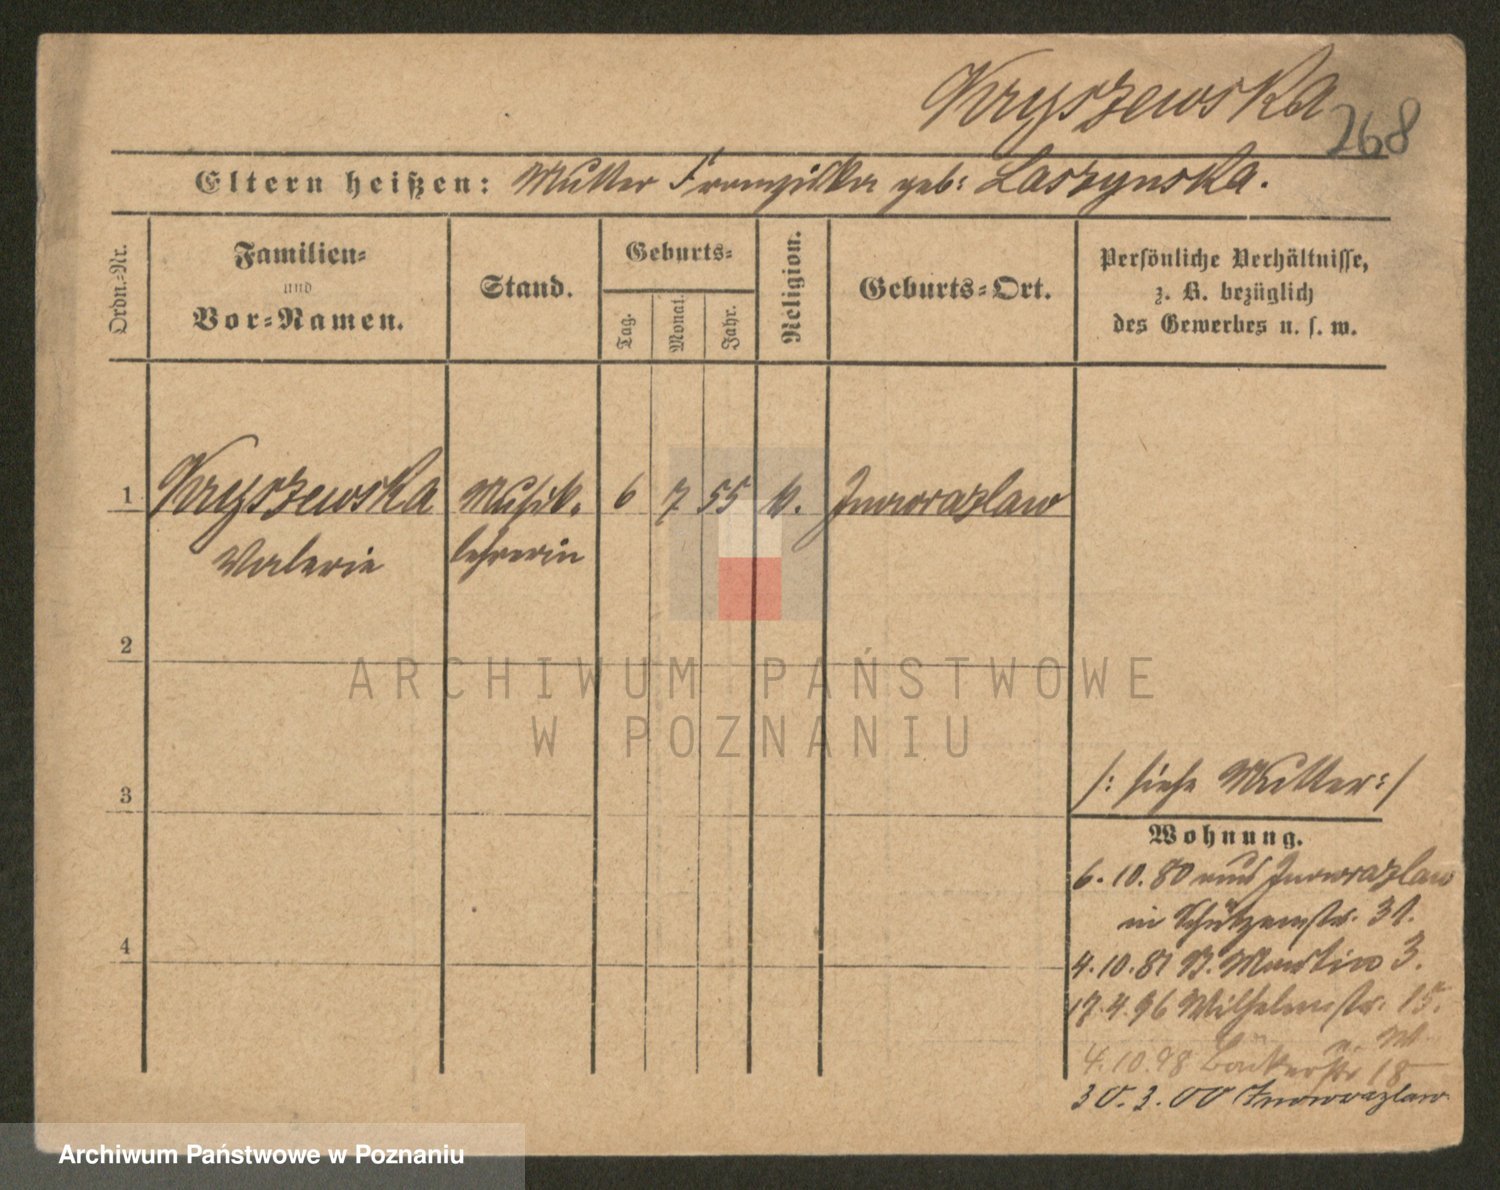 Kryszewska
268
Eltern heißen: Mutter Franziska geb: Laszynska.
Ordn.-Nr.
Familien-
und
Vor-Namen.
Stand.
Geburts-
Tag.
Monat.
Jahr.
Religion.
Geburts-Ort.
Persönliche Verhältnisse,
z. B. bezüglich
des Gewerbes u. s. w.
1 Kryszewska Musik- 6 7 55 k. Inowrazlaw
Valerie lehrerin
2
3
4
/: siehe Mutter :/
Wohnung.
6.10.80 aus Inowrazlaw
in Schützenstr. 31.
4.10.81 St. Martin 3.
17.4.96 Wilhelmstr. 15.
4.10.98 Bäckerstr 18
30.3.00 Inowrazlaw
ARCHIWUM PAŃSTWOWE
W POZNANIU
Archiwum Państwowe w Poznaniu